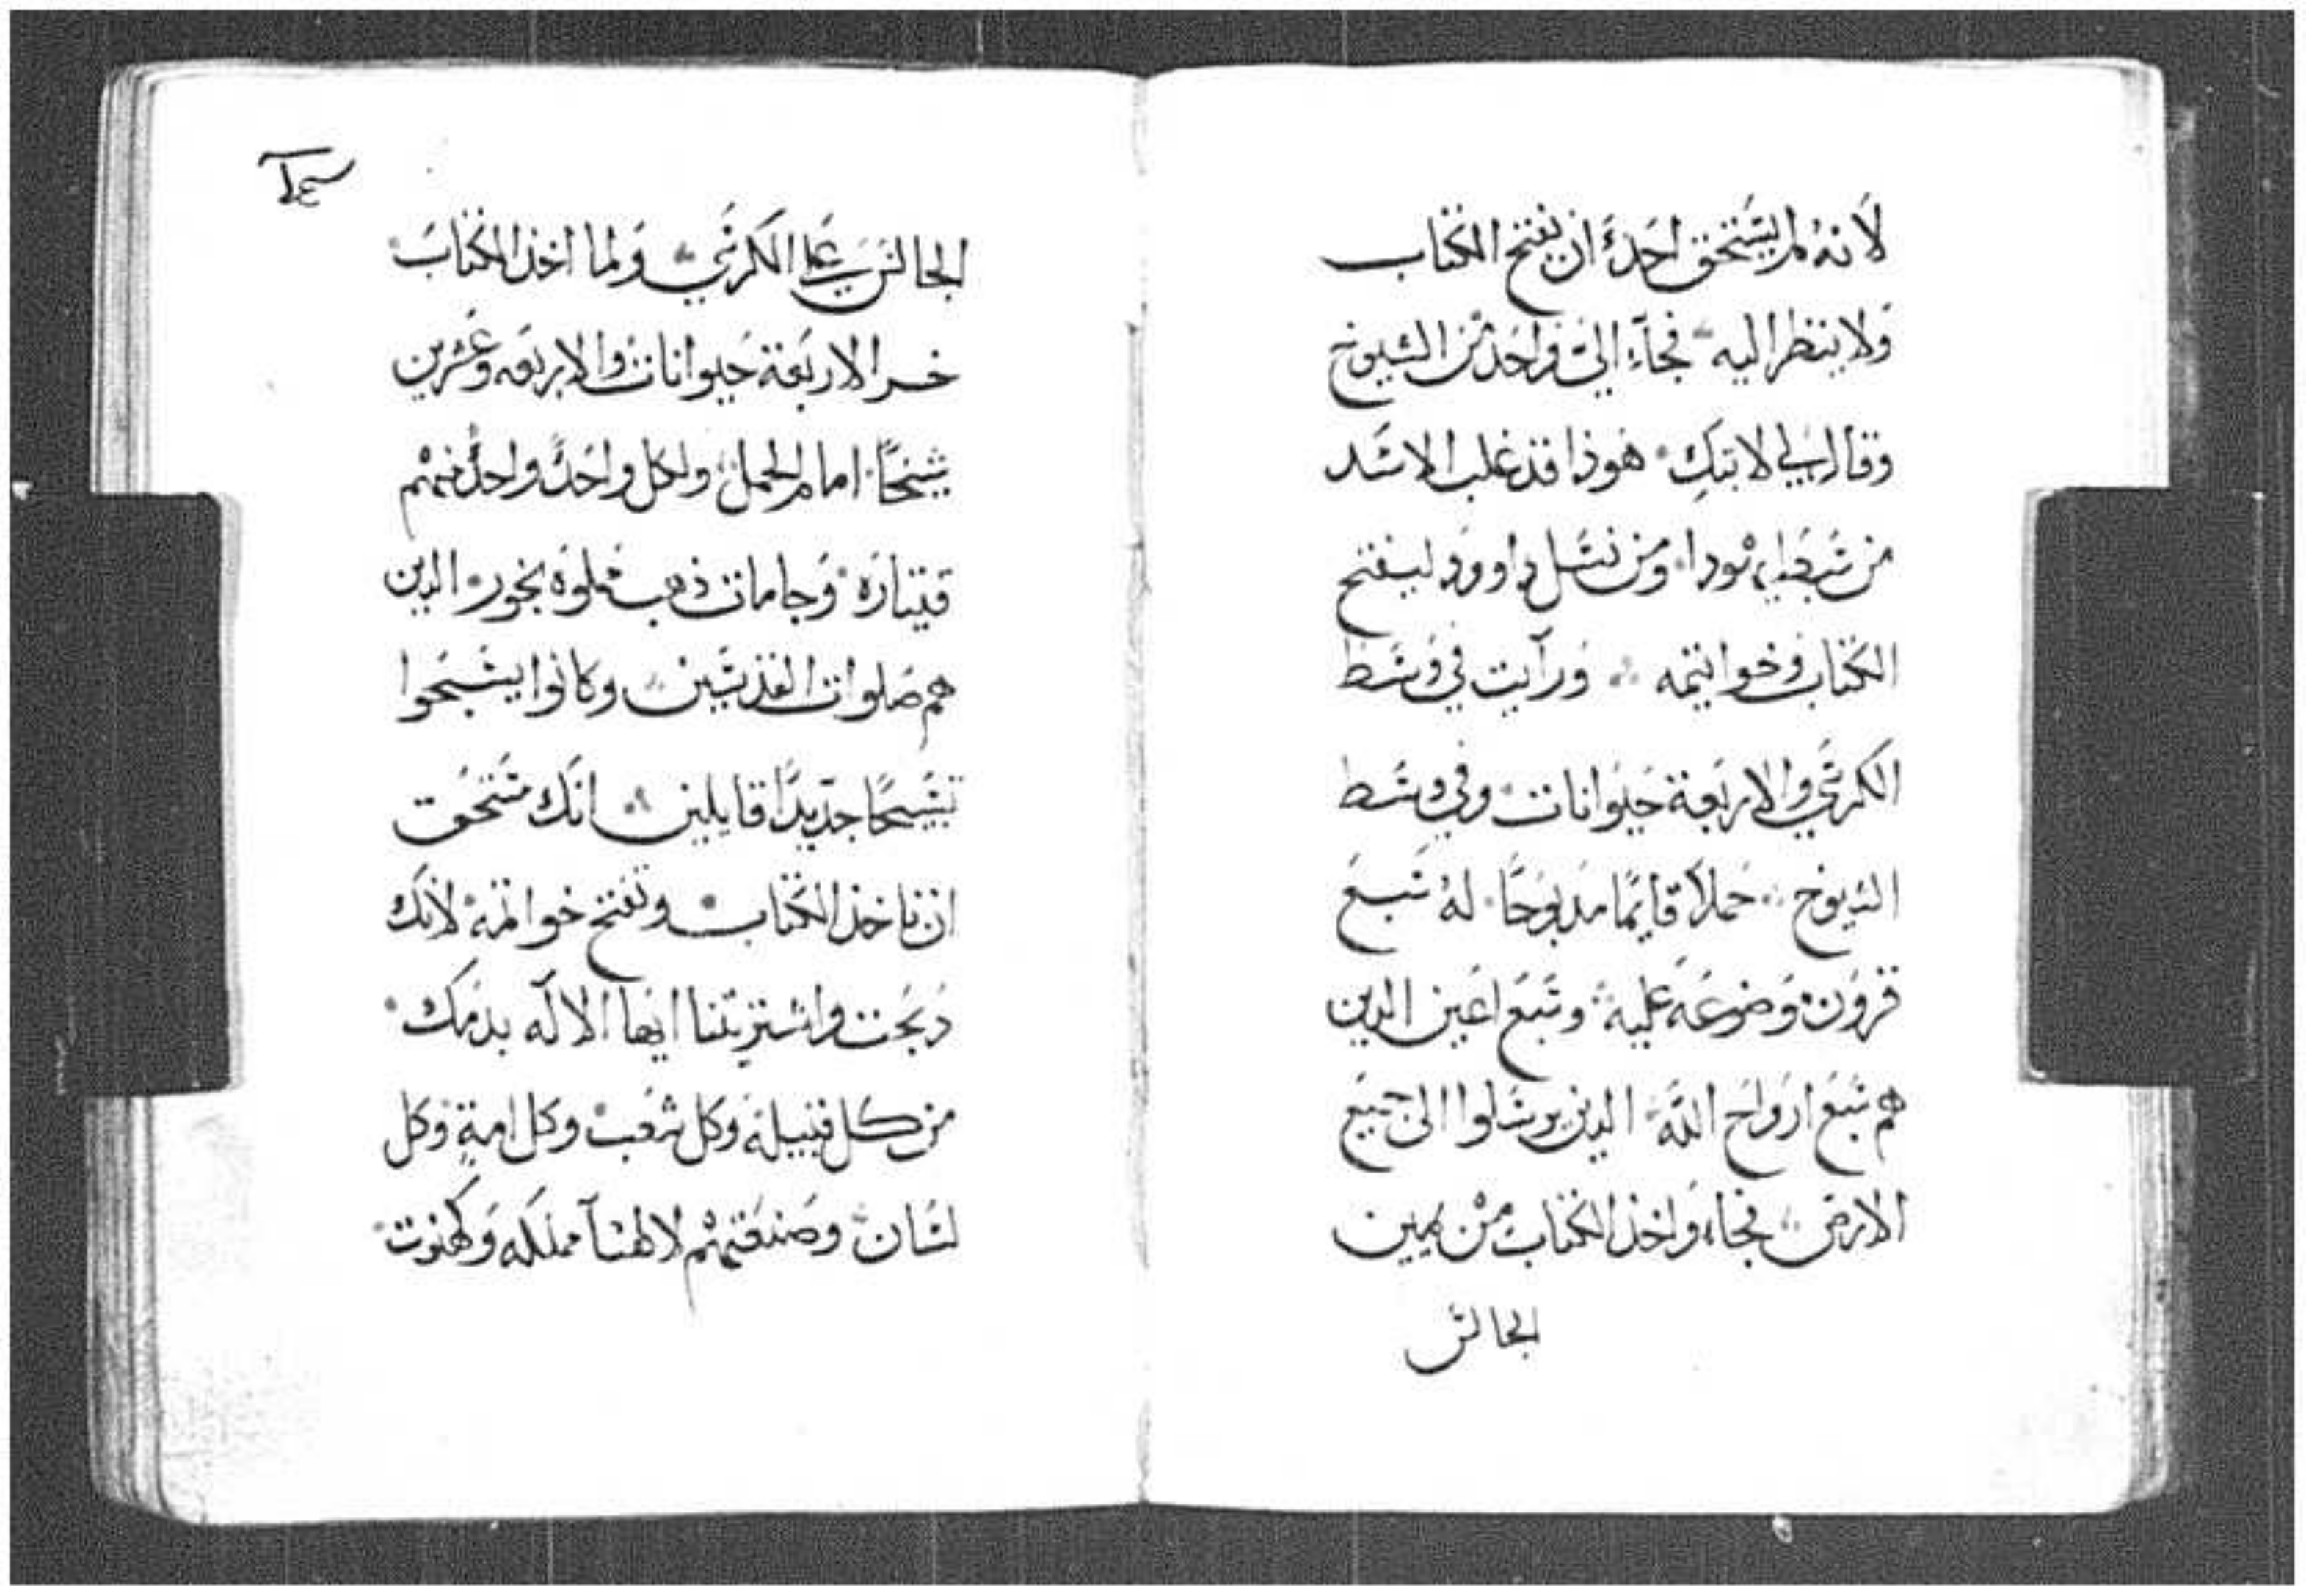 لانهُ لم يستحق احدٌ ان يفتح الكتاب
ولا ينظر اليه فجآء اليَّ واحد من الشيوخ
وقال لي لا تبكِ هوذا قد غلب الاسد
من سبط يهودا ومن نسل داوود ليفتح
الكتاب وخواتيمه ورآيت في وسط
الكرسي والاربعة حيوانات وفي وسط
الشيوخ حملاً قايمًا مدبوحًا له سبع
قرون موضوعه عليه وسبع اعين الدين
هم سبع ارواح اللَّه الدين يرسلوا الى جميع
الارض فجاء واخذ الكتاب من يمين
الجالس
الجالس على الكرسي ولما اخذ الكتاب
خر الاربعة حيوانات والاربعه وعشرين
شيخًا امام الحمل ولكل واحدٍ واحدٍ منهم
قيتاره وجامات ذهب مملوه بخور الدين
هم صلوات القديسين وكانوا يسبحوا
تسبيحًا جديدًا قايلين انك مستحق
ان تاخذ الكتاب وتفتح خواتمه لانك
دبحت واشتريتنا ايها الاله بدمك
من كل قبيله وكل شعب وكل امةٍ وكل
لسان وصنعتهم لالهنآ مملكه وكهنوت